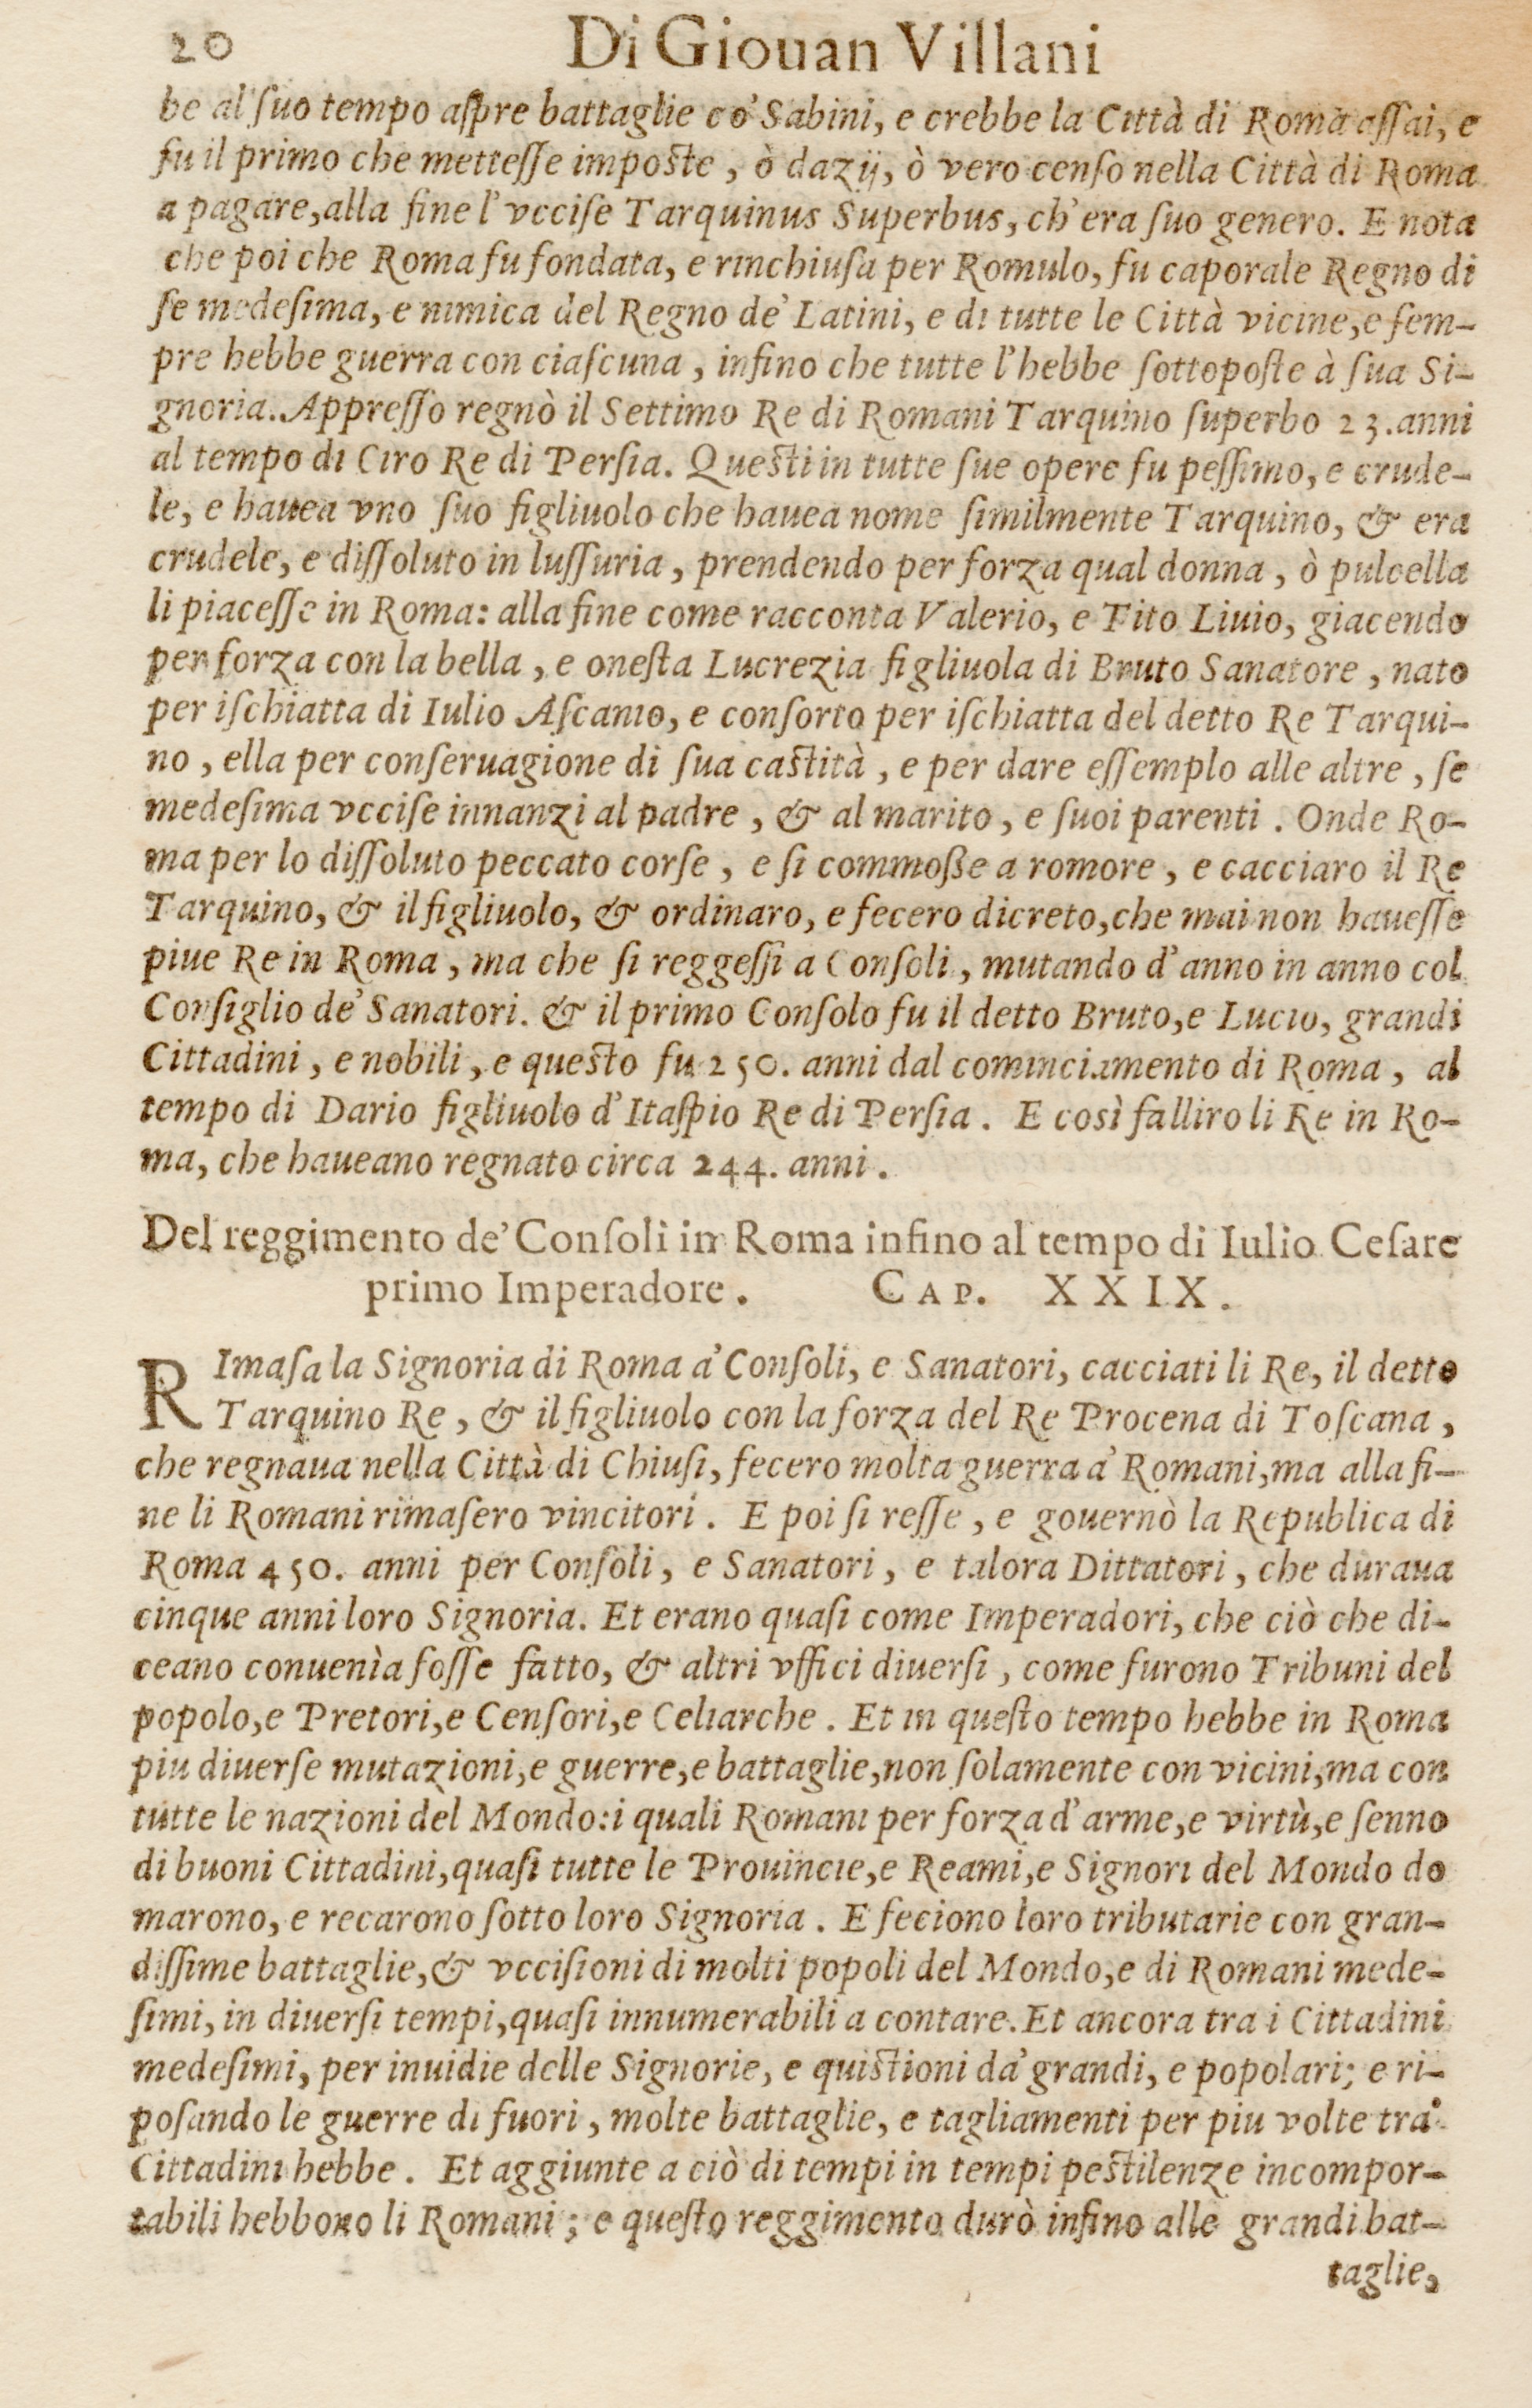 20 Di Giouan Villani
be al ſuo tempo aſpre battaglie co' Sabini, e crebbe la Città di Roma aſſai, e
fu il primo che metteſſe impoſte, ò dazij, ò vero cenſo nella Città di Roma
a pagare, alla fine l'vcciſe Tarquinus Superbus, ch'era ſuo genero. E nota
che poi che Roma fu fondata, e rinchiuſa per Romulo, fu caporale Regno di
ſe medeſima, e nimica del Regno de' Latini, e di tutte le Città vicine, e ſem-
pre hebbe guerra con ciaſcuna, infino che tutte l'hebbe ſottopoſte à ſua Si-
gnoria. Appreſſo regnò il Settimo Re di Romani Tarquino ſuperbo 23. anni
al tempo di Ciro Re di Perſia. Queſti in tutte ſue opere fu peſſimo, e crude-
le, e hauea vno ſuo figliuolo che hauea nome ſimilmente Tarquino, & era
crudele, e diſſoluto in luſſuria, prendendo per forza qual donna, ò pulcella
li piaceſſe in Roma: alla fine come racconta Valerio, e Tito Liuio, giacendo
per forza con la bella, e oneſta Lucrezia figliuola di Bruto Sanatore, nato
per iſchiatta di Iulio Aſcanio, e conſorto per iſchiatta del detto Re Tarqui-
no, ella per conſeruagione di ſua caſtità, e per dare eſſemplo alle altre, ſe
medeſima vcciſe innanzi al padre, & al marito, e ſuoi parenti. Onde Ro-
ma per lo diſſoluto peccato corſe, e ſi commoße a romore, e cacciaro il Re
Tarquino, & il figliuolo, & ordinaro, e fecero dicreto, che mai non haueſſe
piue Re in Roma, ma che ſi reggeſſi a Conſoli, mutando d'anno in anno col
Conſiglio de' Sanatori. & il primo Conſolo fu il detto Bruto, e Lucio, grandi
Cittadini, e nobili, e queſto fu 250. anni dal cominciamento di Roma, al
tempo di Dario figliuolo d'Itaſpio Re di Perſia. E così falliro li Re in Ro-
ma, che haueano regnato circa 244. anni.
Del reggimento de' Conſoli in Roma infino al tempo di Iulio Ceſare
primo Imperadore. CAP. XXIX.
RImaſa la Signoria di Roma a' Conſoli, e Sanatori, cacciati li Re, il detto
Tarquino Re, & il figliuolo con la forza del Re Procena di Toſcana,
che regnaua nella Città di Chiuſi, fecero molta guerra a' Romani, ma alla fi-
ne li Romani rimaſero vincitori. E poi ſi reſſe, e gouernò la Republica di
Roma 450. anni per Conſoli, e Sanatori, e talora Dittatori, che duraua
cinque anni loro Signoria. Et erano quaſi come Imperadori, che ciò che di-
ceano conuenìa foſſe fatto, & altri vffici diuerſi, come furono Tribuni del
popolo, e Pretori, e Cenſori, e Celiarche. Et in queſto tempo hebbe in Roma
piu diuerſe mutazioni, e guerre, e battaglie, non ſolamente con vicini, ma con
tutte le nazioni dèl Mondo: i quali Romani per forza d'arme, e virtù, e ſenno
di buoni Cittadini, quaſi tutte le Prouincie, e Reami, e Signori del Mondo do
marono, e recarono ſotto loro Signoria. E feciono loro tributarie con gran-
diſſime battaglie, & vcciſioni di molti popoli del Mondo, e di Romani mede-
ſimi, in diuerſi tempi, quaſi innumerabili a contare. Et ancora tra i Cittadini
medeſimi, per inuidie delle Signorie, e quiſtioni da' grandi, e popolari; e ri-
poſando le guerre di fuori, molte battaglie, e tagliamenti per piu volte tra'
Cittadini hebbe. Et aggiunte a ciò di tempi in tempi peſtilenze incompor-
tabili hebbono li Romani; e queſto reggimento durò infino alle grandi bat-
taglie,